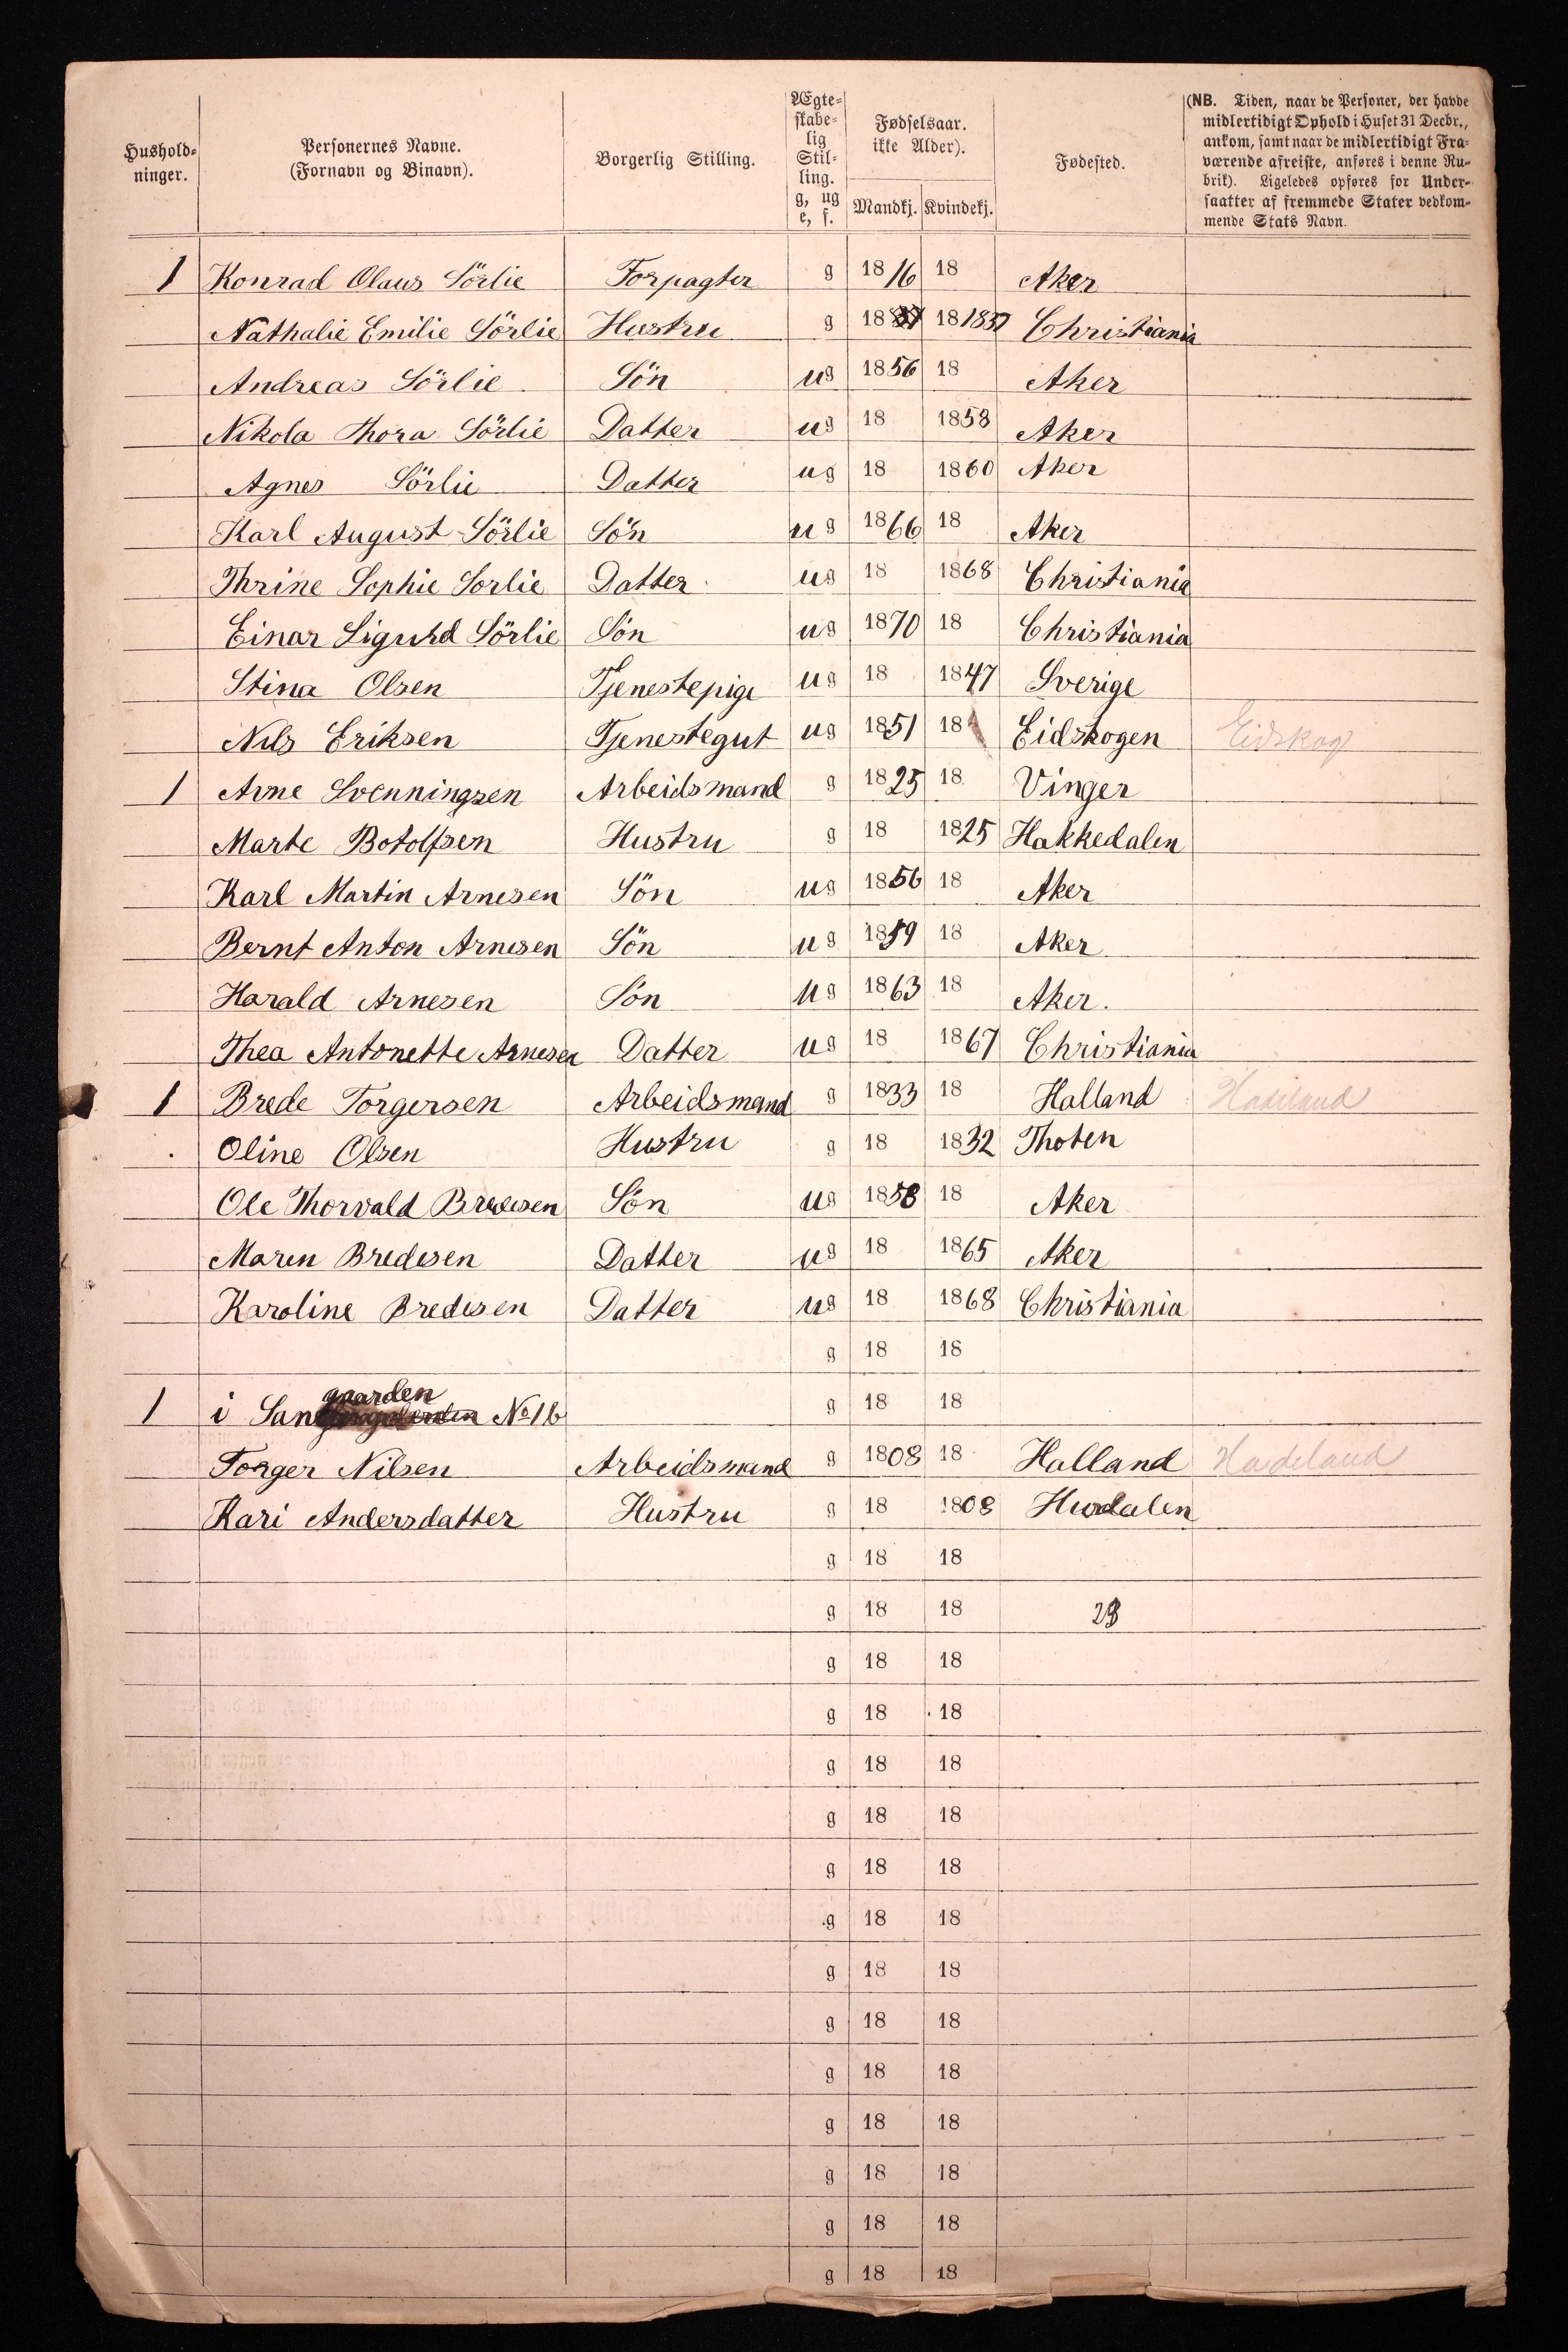 Hushold-
ninger.
Personernes Navne.
(Fornavn og Binavn).
Borgerlig Stilling.
Ægte-
skabe-
lig
Stil-
ling.
g, ug
e, f.
Fødselsaar.
ikke Alder).
Mandkj. Kvindekj.
Fødested.
(NB. Tiden, naar de Personer, der havde
midlertidigt Ophold i Huset 31 Decbr.,
ankom, samt naar de midlertidigt Fra-
værende afreiste, anføres i denne Ru-
brik). Ligeledes opføres for Under-
saatter af fremmede Stater vedkom-
mende Stats Navn.
1 Konrad Olaus Sörlie Forpagter g 1816 18 Aker
Nathalie Emilie Sörlie Hustru g 1837 181837 Christiania
Andreas Sörlie Sön ug 1856 18 Aker
Nikola Thora Sörlie Datter ug 18 1858 Aker
Agnes Sörlie Datter ug 18 1860 Aker
Karl August Sörlie Sön ug 1866 18 Aker
Thrine Sophie Sorlie Datter ug 18 1868 Christiania
Einar Sigurd Sörlie Sön ug 1870 18 Christiania
Stina Olsen Tjenestepige ug 18 1847 Sverige
Nils Eriksen Tjenestegut ug 1851 18 Eidskogen Eidskog
1 Arne Svenningsen Arbeidsmand g 1825 18 Vinger
Marte Botolfsen Hustru g 18 1825 Hakkedalen
Karl Martin Arnesen Sön ug 1856 18 Aker
Bernt Anton Arnesen Sön ug 1859 18 Aker
Harald Arnesen Sön ug 1863 18 Aker.
Thea Antonette Arnesen Datter ug 18 1867 Christiania
1 Brede Torgersen Arbeidsmand g 1833 18 Halland Hadeland
Oline Olsen Hustru g 18 1832 Thoten
Ole Thorvald Bredesen Sön ug 1858 18 Aker
Maren Bredesen Datter ug 18 1865 Aker
Karoline Bredesen Datter ug 18 1868 Christiania
g 18 18
gaarden
1 i San No 16 g 18 18
Torger Nilsen Arbeidsmand g 1808 18 Halland Hadeland
Kari Andersdatter Hustru g 18 1808 Hurdalen
g 18 18
g 18 18 23
g 18 18
g 18 18
g 18 18
g 18 18
g 18 18
g 18 18
g 18 18
g 18 18
g 18 18
g 18 18
g 18 18
g 18 18
g 18 18